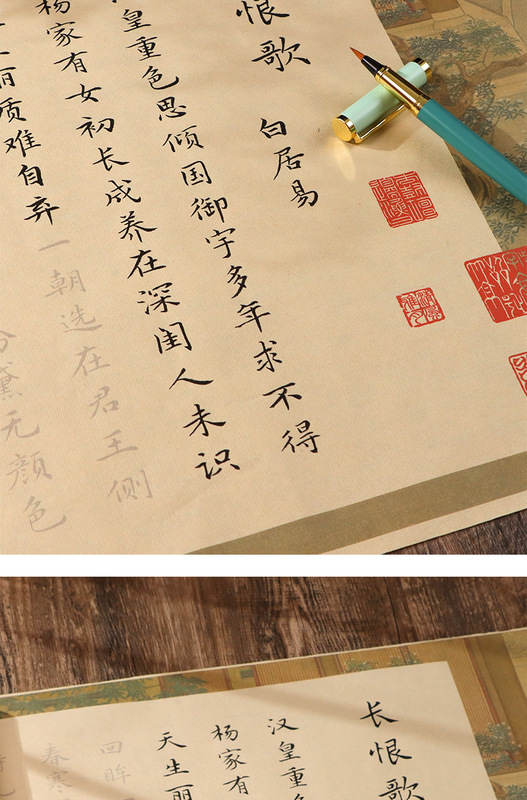 恨歌
白居易
皇重色思倾国御宇多年求不得
杨家有女初长成养在深闺人未识
丽质难自弃
一朝选在君王侧
黛无颜色
长恨歌
汉皇重色
杨家有
天生丽
回眸
春寒